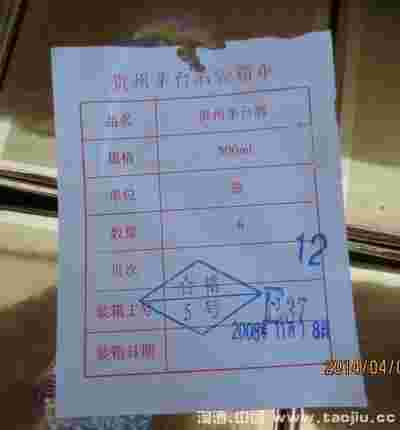 贵州茅台酒装箱单
品名 贵州茅台酒
规格 500ml
单位 瓶
数量 6
班次 12
合格
装箱工号 5号
装箱日期 2008年11月18日
2014/04/0
www.taojiu.cc